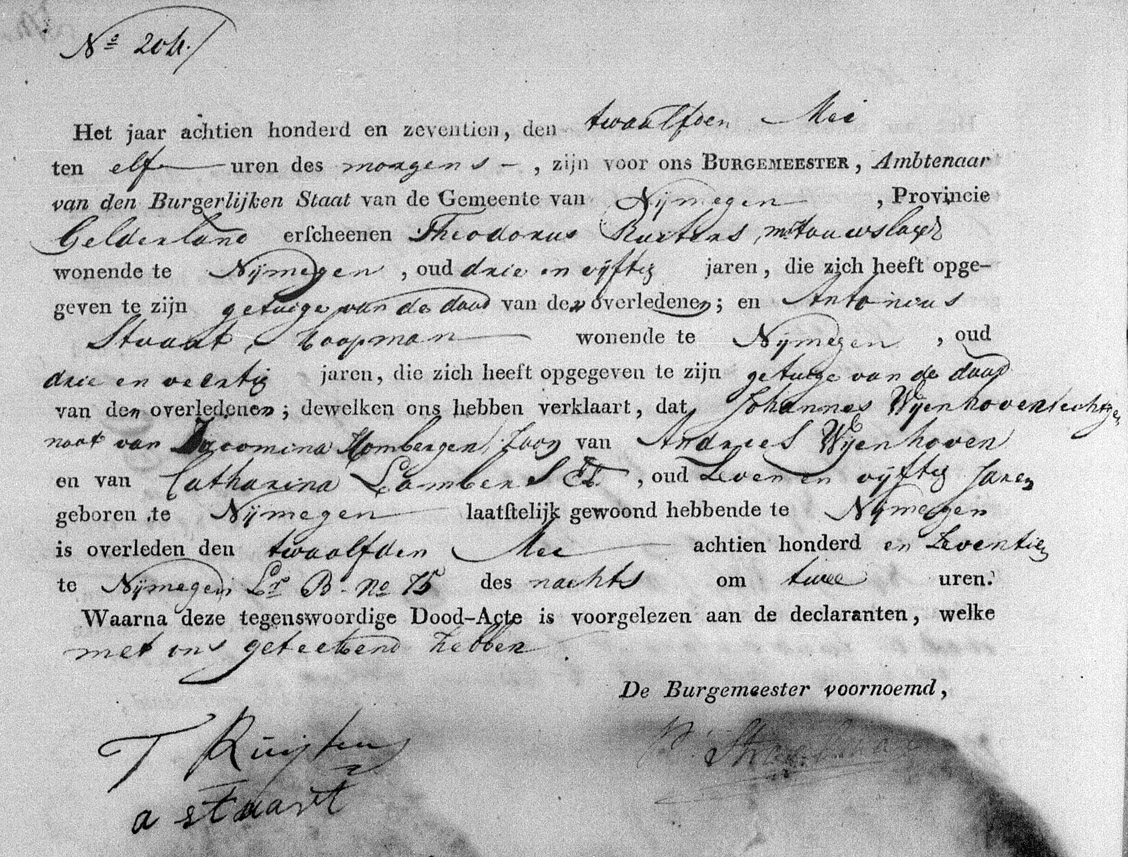 No 204.
Het jaar achtien honderd en zeventien, den twaalfden Mei
ten elf uren des morgens, zijn voor ons BURGEMEESTER, Ambtenaar
van den Burgerlijken Staat van de Gemeente van Nijmegen, Provincie
Gelderland erscheenen Theodorus Ruiters, mr touwslager
wonende te Nijmegen, oud drie en vijftig jaren, die zich heeft opge-
geven te zijn getuige van de dood van den overledenen; en Antonius
Stuart, koopman wonende te Nijmegen, oud
drie en veertig jaren, die zich heeft opgegeven te zijn getuige van de dood
van den overledenen; dewelken ons hebben verklaart, dat Johannes Wijenhoven echtge
noot van Jacomina Hombergen, zoon van Andries Wijenhoven
en van Catharina Lambers, oud zeven en vijftig jaren
geboren te Nijmegen laatstelijk gewoond hebbende te Nijmegen
is overleden den twaalfden Mei achtien honderd en zeventien
te Nijmegen Lr B. no 75 des nachts om twee uren.
Waarna deze tegenswoordige Dood-Acte is voorgelezen aan de declaranten, welke
met ons geteekend hebben.
De Burgemeester voornoemd,
T Ruijters
a stuart